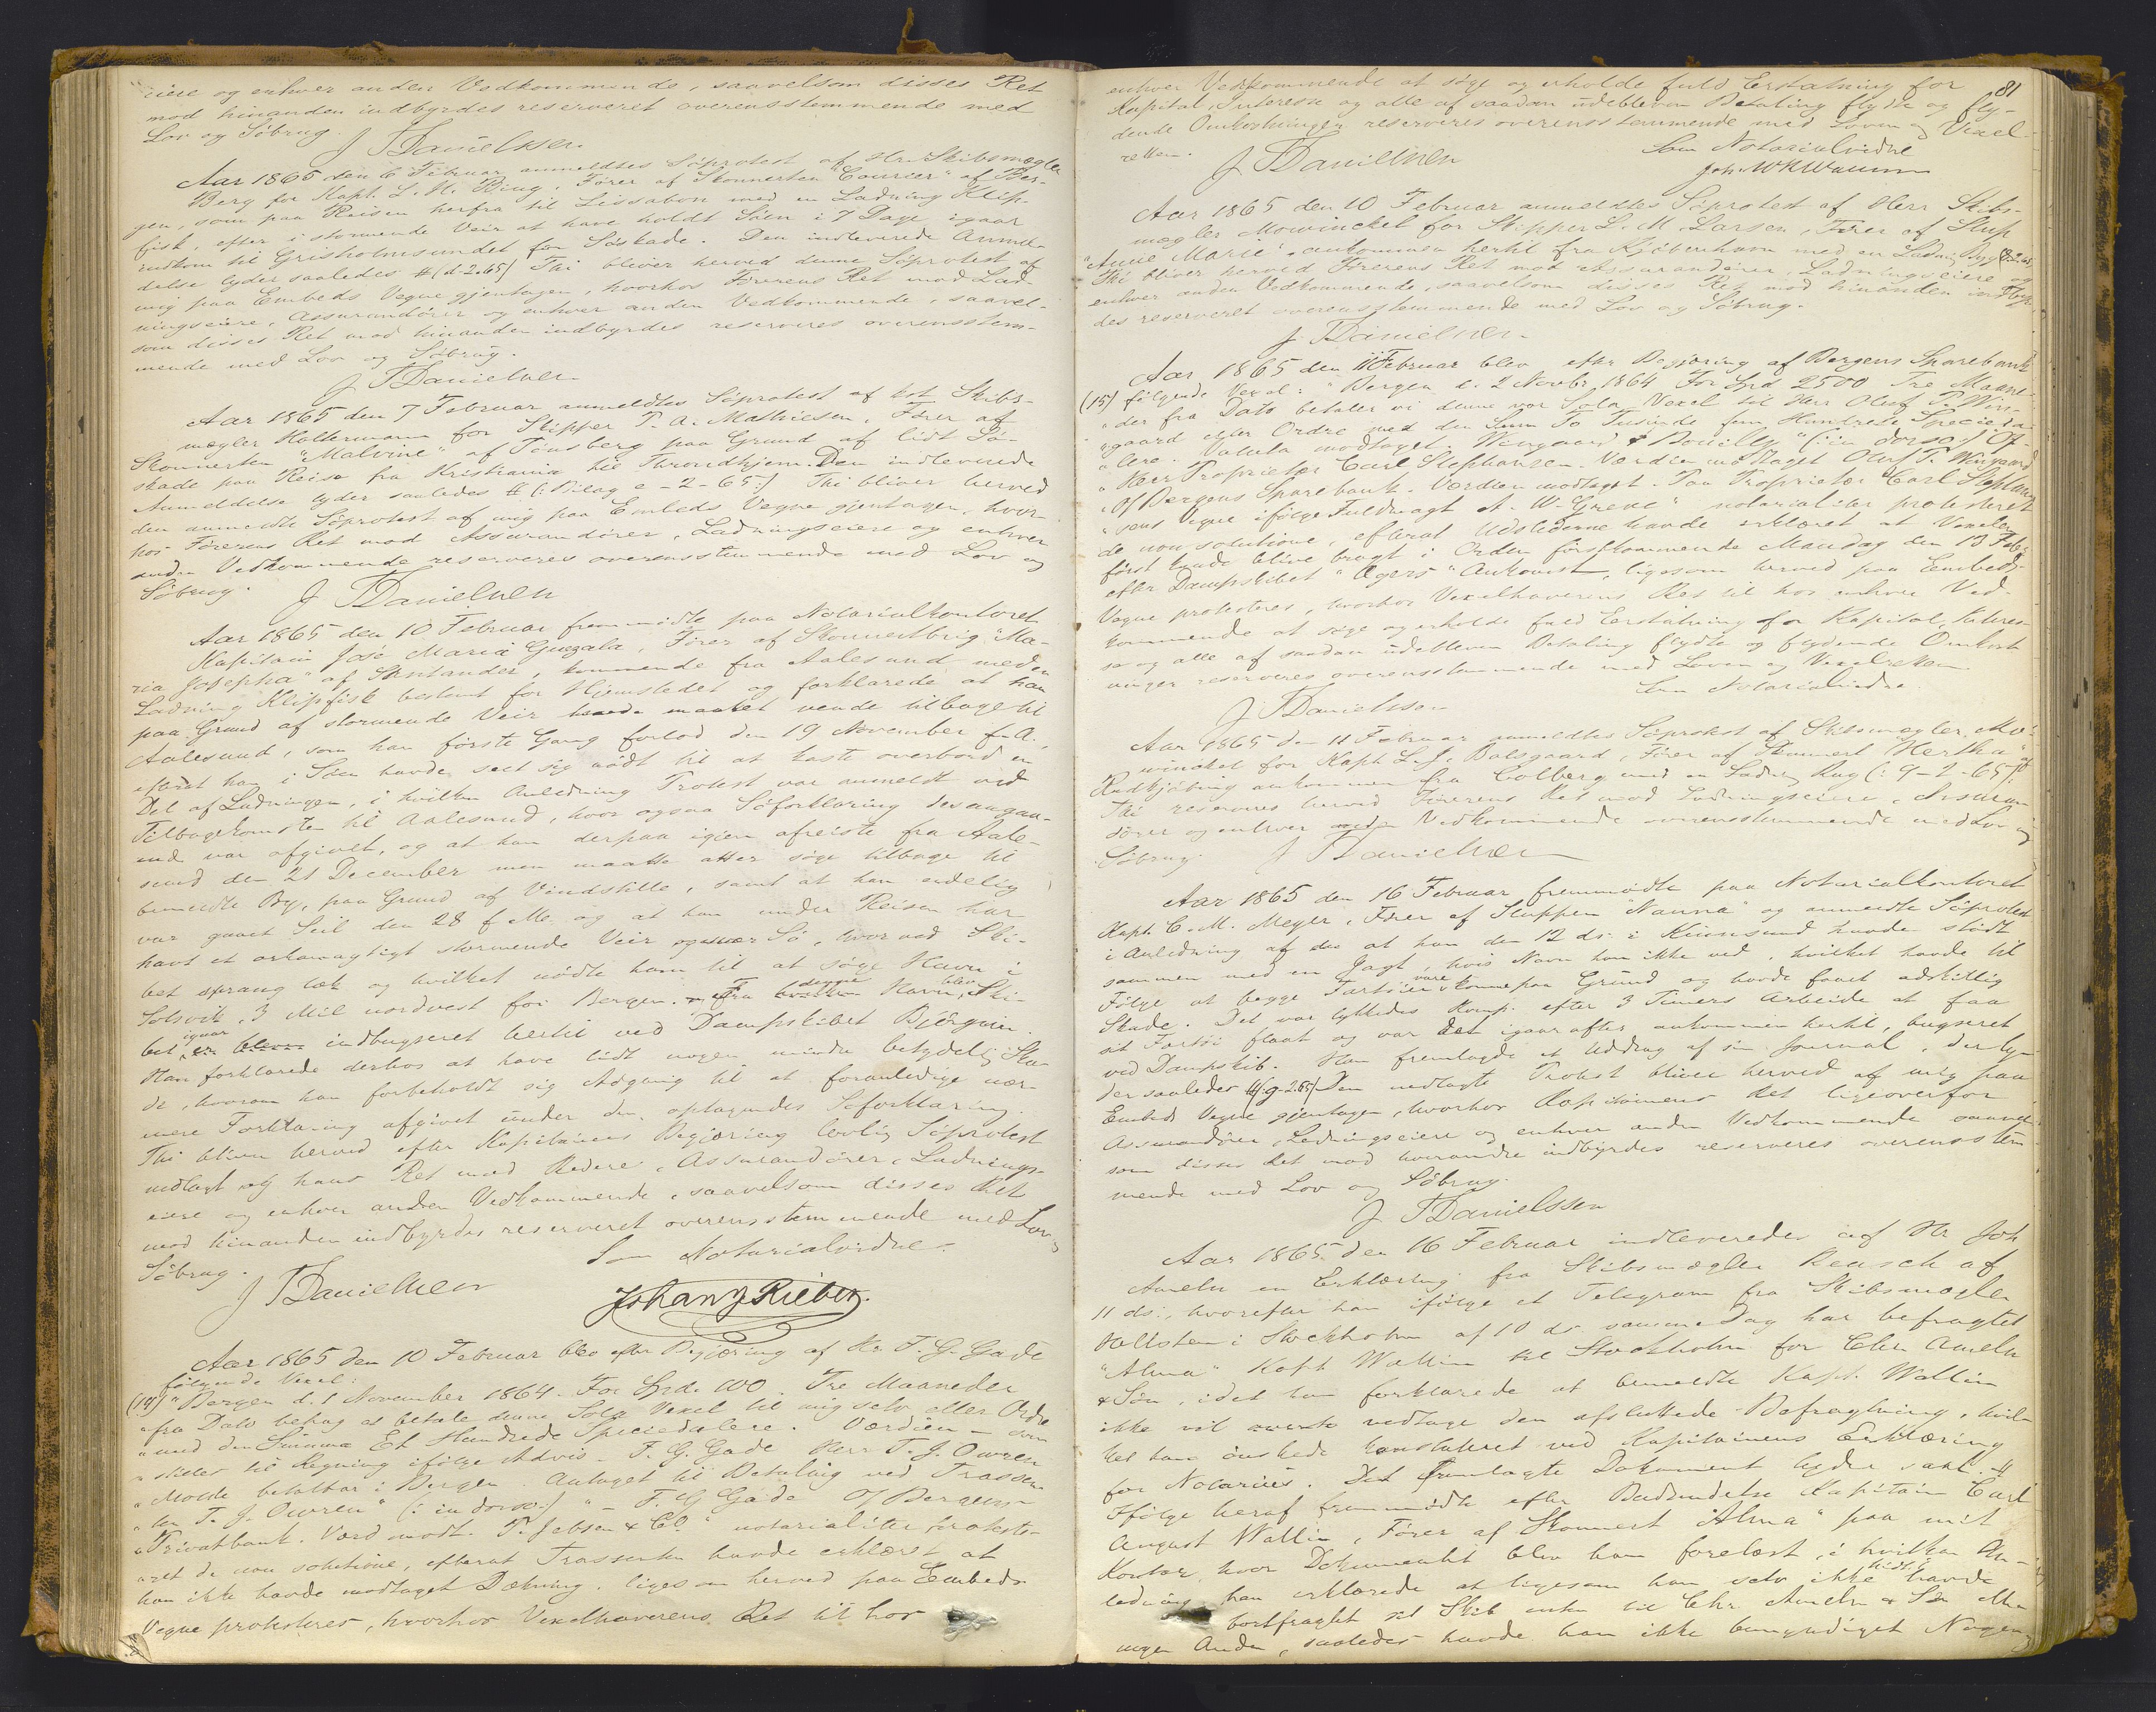 eiere og enhver anden Vedkommende, saavelsom disses Ret
mod hinanden indbyrdes reserveret overensstemmende med
Lov og Söbrug.
J TDanielssen
Aar 1865 den 6 Februar anmeldtes Söprotest af Hr. Skibsmægler
Berg for Kapt. L. H. Ring, Förer af Skonnerten "Courier" af Ber-
gen, som paa Reisen herfra til Lissabon med en Ladning Klip-
fisk, efter i stormende Veir at have holdt Söen i 7 Dage igaar
indkom til Grisholmsundet for Söskade. Den indleverede Anmel-
delse lyder saaledes # (d-2.65) Thi bliver herved denne Söprotest af
mig paa Embeds Vegne gjentagen, hvorhos Förerens Ret mod Lad-
ningseiere, Assurandörer og enhver anden Vedkommende, saavel-
som disses Ret mod hinanden indbyrdes reserveres overensstem-
mende med Lov og Söbrug.
J TDanielssen
Aar 1865 den 7 Februar anmeldtes Söprotest af kst. Skibs-
mægler Haltermann for Skipper T. A. Mathiesen, Förer af
Skonnerten "Malvine" af Tönsberg paa Grund af lidt Sö-
skade paa Reise fra Kristiania til Throndhjem. Den indleverede
Anmeldelse lyder saaledes # (: Bilag e-2-65:) Thi bliver herved
den anmeldte Söprotest af mig paa Embeds Vegne gjentagen, hvor-
hos Förerens Ret mod Assurandörer, Ladningseiere og enhver
anden Vedkommende reserveres overensstemmende med Lov og
Söbrug.
J TDanielssen
Aar 1865 den 10 Februar fremmödte paa Notarialkontoret
Kapitain José Maria Guezala, Förer af Skonnertbrig "Ma-
ria Josepha" af Santander, kommende fra Aalesund med en
Ladning Klipfisk bestemt for Hjemstedet og forklarede at han
paa Grund af stormende Veir havde maattet vende tilbage til
Aalesund, som han förste Gang forlod den 19 November f. A.,
efterat han i Söen havde seet sig nödt til at kaste overbord en
Del af Ladningen, i hvilken Anledning Protest var anmeldt ved
Tilbagekomsten til Aalesund, hvor ogsaa Söforklaring desangaa-
ende var afgivet, og at han derpaa igjen afreiste fra Aale-
sund den 21 December men maatte atter söge tilbage til
bemeldte By, paa Grund af Vindstille, samt at han endelig
var gaaet Seil den 28 f. M. og at han under Reisen har
havt et orkanagtigt stormende Veir og svær Sö, hvorved Ski-
bet sprang læk og hvilket nödte ham til at söge Havn i
Solsvik, 3 Mil nordvest for Bergen. Fra denne Havn blev Ski-
bet igaar indbugseret hertil ved Dampskibet Björgvin.
Han forklarede derhos at have lidt nogen mindre betydelig Ska-
de, hvorom han forbeholdt sig Adgang til at foranledige nær-
mere Forklaring afgivet under den optagendes Söforklaring.
Thi bliver herved efter Kapitainens Begjæring lovlig Söprotest
nedlagt og hans Ret mod Redere, Assurandörer, Ladnings-
eiere og enhver anden Vedkommende, saavelsom disses Ret
mod hinanden indbyrdes reserveret overensstemmende med Lov og
Söbrug.
Som Notarialvidne
J TDanielssen
Johan G Rieber.
Aar 1865 den 10 Februar blev efter Begjæring af Hr. F. G. Gade
fölgende Vexel:
(14) "Bergen d. 1 November 1864. For Spd. 100. Tre Maaneder
"fra Dato behag at betale denne Sola Vexel til mig selv eller Ordre
"med den Summa Et Hundrede Speciedalere. Værdien som
"stilles til Regning ifölge Advis. F. G. Gade Herr T. J. Owren
"Molde betalbar i Bergen. Antaget til Betaling ved Trassen-
"ten T. J. Owren" (: in dorso:) "F. G Gade O/ Bergens
"Privatbank. Værd modt. P. Jebsen & Co." notarialiter proteste-
ret de non solutione, efterat Trassenten havde erklæret at
han ikke havde modtaget Dækning. ligesom herved paa Embeds
Vegne protesteres, hvorhos Vexelhaverens Ret til hos
81
enhver Vedkommende at söge og erholde fuld Erstatning for
Kapital, Interesse og alle af saadan udebleven Betaling flydte og fly-
dende Omkostninger reserveres overensstemmende med Loven og Vexel-
retten.
Som Notarialvidne
J TDanielssen
Aar 1865 den 10 Februar anmeldtes Söprotest af Herr Skibs-
mægler Mowinckel for Skipper L. M. Larsen, Förer af Slup
"Anne Marie", ankommen hertil fra Kjöbenhavn med en Ladning Byg
Thi bliver herved Förerens Ret mod Assurandörer, Ladningseiere og
enhver anden Vedkommende, saavelsom disses Ret mod hinanden indbyr-
des reserveret overensstemmende med Lov og Söbrug.
J. TDanielssen
Aar 1865 den 11 Februar blev efter Begjæring af Bergens Sparebank
(15) fölgende Vexel: "Bergen d. 2 Novbr 1864 For Spd 2500 Tre Maane-
"der fra Dato betaler vi denne vor Sola Vexel til Herr Oluf T. Win-
"gaard eller Ordre med den Sum To Tusinde fem Hundrede Specieda-
"lere. Valuta modtaget. Wingaard & Bouilly" (: in dorso:) O/
"Herr Proprietær Carl Stephansen. Værdien modtaget Oluf T. Wingaard
"O/ Bergens Sparebank. Værdien modtaget. Paa Proprietær Carl Stephan-
"sens Vegne ifölge Fuldmagt A. W. Greve" notarialiter protesteret
de non solutione, efterat Udstederne havde erklæret at Vexelen
först kunde blive bragt i Orden förstkommende Mandag den 13 Febr
efter Dampskibet "Ægers" Ankomst, ligesom herved paa Embeds
Vegne protesteres, hvorhos Vexelhaverens Ret til hos enhver Ved-
kommende at söge og erholde fuld Erstatning for Kapital, Interes-
se og alle af saadan udebleven Betaling flydte og flydende Omkost-
ninger reserveres overensstemmende med Loven og Vexelretten.
Som Notarialvidne.
J TDanielssen
Aar 1865 den 11 Februar anmeldtes Söprotest af Skibsmægler Mo-
winckel for Kapt L. J. Dalsgaard, Förer af Skonnert "Hertha" af
Rudkjöbing ankommen fra Colberg med en Ladning Rug (: 9-2-65:)
Thi reserveres herved Förerens Ret mod Ladningseiere, Assuran-
dörer og enhver anden Vedkommende overensstemmende med Lov og
Söbrug.
J TDanielssen
Aar 1865 den 16 Februar fremmödte paa Notarialkontoret
Kapt. C. M. Meyer, Förer af Sluppen "Nanna" og anmeldte Söprotest
i Anledning af at han den 12 ds. i Kuönsund havde stödt
sammen med en Jagt, hvis Navn han ikke ved, hvilket havde til
Fölge at begge Fartöier vare komne paa Grund og havde faaet adskillig
Skade. Det var lykkedes Komp. efter 3 Timers Arbeide at faa
sit Fartöi flaat og var det igaar aftes ankommen hertil, bugseret
ved Dampskib. Han fremlagde et Uddrag af sin Journal, der ly-
der saaledes # (g-2.65) Den nedlagte Protest bliver herved af mig paa
Embeds Vegne gjentagen, hvorhos Kapitainens Ret ligeoverfor
Assurandörer, Ladningseiere og enhver anden Vedkommende saavel-
som disses Ret mod hverandre indbyrdes reserveres overensstem-
mende med Lov og Söbrug.
J TDanielssen
Aar 1865 den 16 Februar indleveredes af Hr Joh
Ameln en Erklæring fra Skibsmægler Reusch af
11 ds., hvorefter han ifölge et Telegram fra Skibsmægler
Hollsten i Stockholm af 10 ds samme Dag har befragtet
"Alma" Kapt Wallin til Stockholm for Chr Ameln
& Sön, idet han forklarede at bemeldte Kapt. Wallin
ikke vil vedtage den afsluttede Befragtning, hvil-
ket han önskede konstateret ved Kapitainens Erklæring
for Notarius. Det fremlagte Dokument lyder saal. #
Ifölge heraf fremmödte efter Budsendelse Kapitain Carl
August Wallin, Förer af Skonnert "Alma" paa mit
Kontor, hvor Dokumentet blev ham forelæst, i hvilken An-
ledning han erklærede at ligesom han selv ikke hidtil havde
bortfragtet sit Skib enten til Chr Ameln & Sön eller
nogen Anden, saaledes havde han ikke bemyndiget Nogen